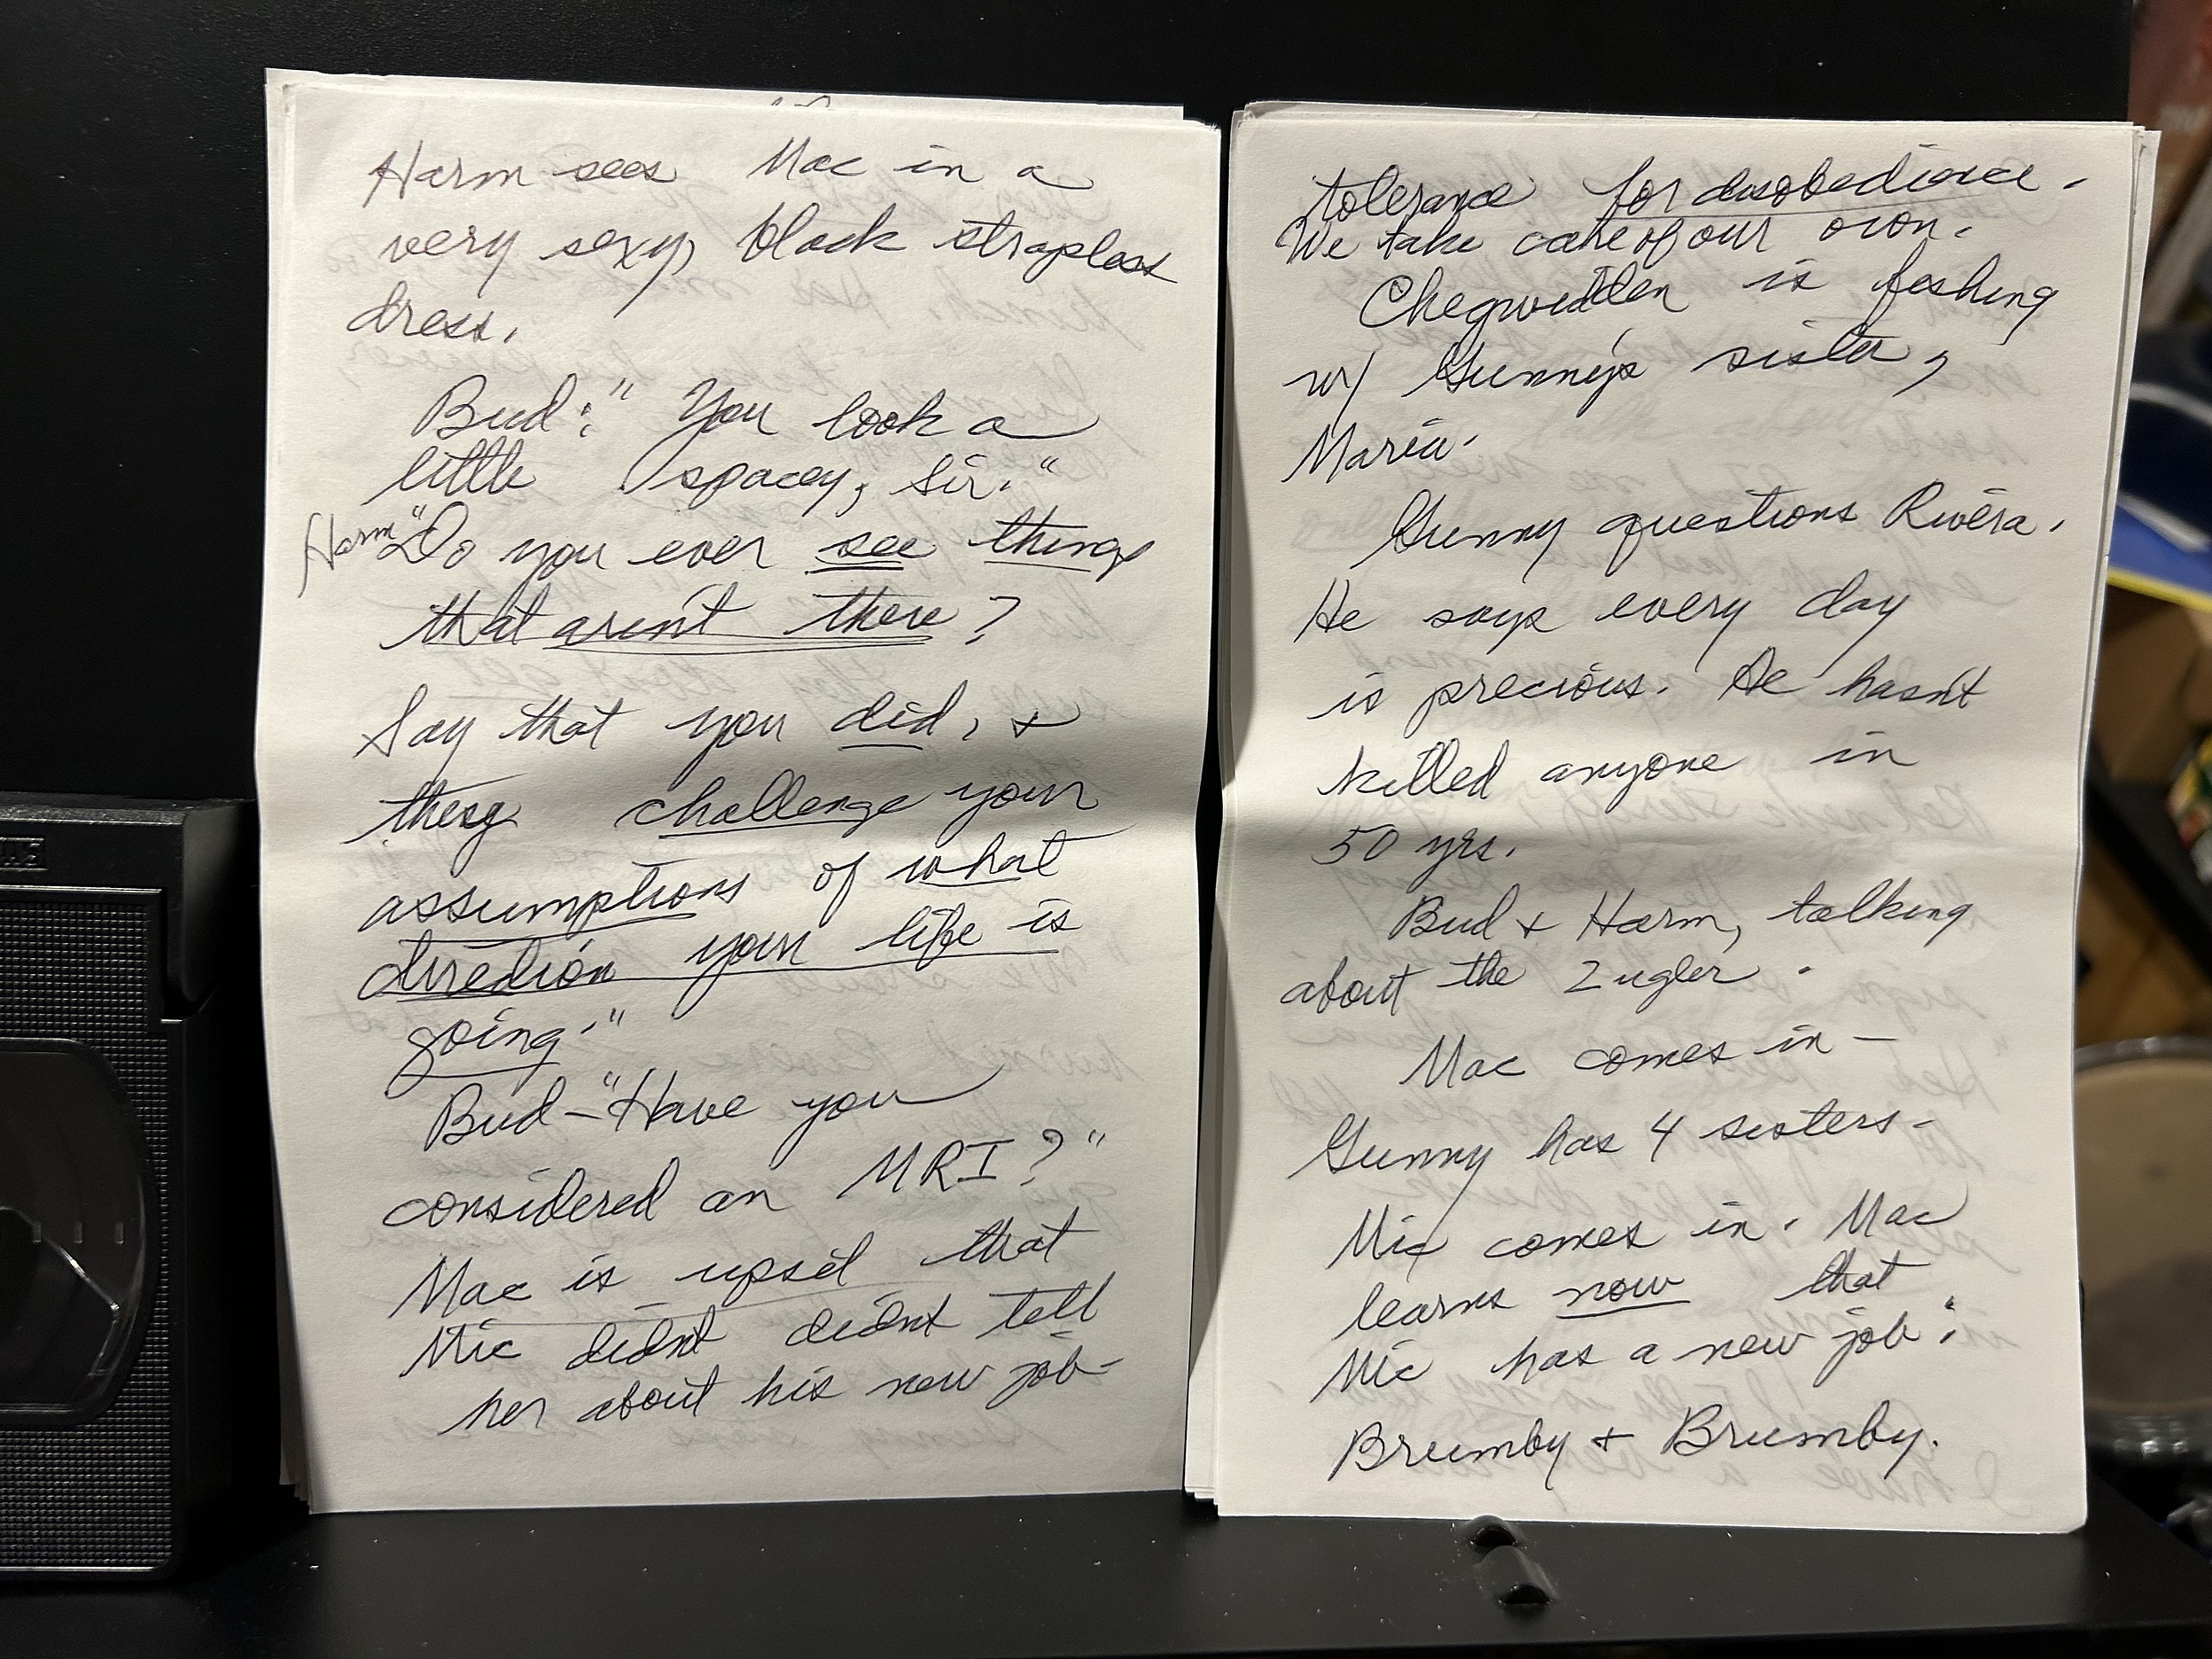 Harm sees Mac in a
very sexy, black strapless
dress.
Bud: "You look a
little spacey, Sir."
Harm "Do you ever see things
that aren't there?
Say that you did, &
they challenge your
assumptions of what
direction your life is
going."
Bud - "Have you
considered an MRI?"
Mac is upset that
Mic didnt didnt tell
her about his new job-
tolerance for disobedience.
We take care of our own.
Chegwidden is fishing
w/ Gunny's sister,
Maria.
Gunny questions Rivera.
He says every day
is precious. He hasn't
killed anyone in
50 yrs.
Bud & Harm, talking
about the Zugler.
Mac comes in -
Gunny has 4 sisters-
Mic comes in. Mac
learns now that
Mic has a new job:
Brumby & Brumby.